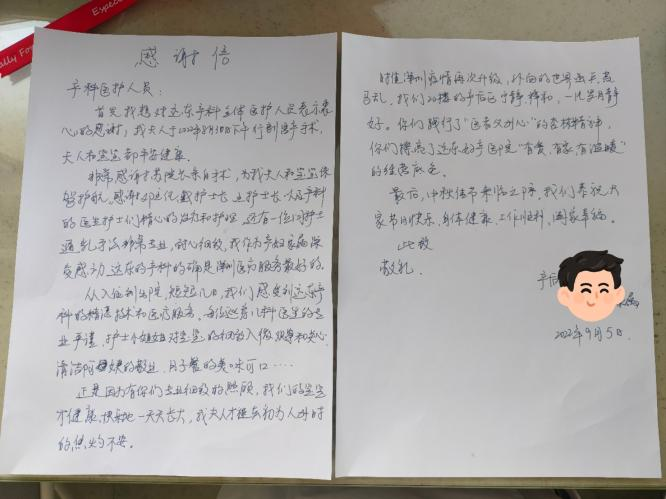 感谢信
产科医护人员：
首先我想对远东产科全体医护人员表示衷
心的感谢，我夫人于2022年8月30日下午行剖宫产手术，
大人和宝宝都平安健康。
非常感谢 院长亲自手术，为我夫人和宝宝保
驾护航。感谢 主任、戴护士长、 护士长以及产科
的医生护士们精心的治疗和护理，还有一位 护士
通乳手法非常专业，耐心细致，我作为产妇家属深
受感动，远东的产科的确是深圳医疗服务最好的。
从入住到出院，短短几日，我们感受到远东产
科的精湛技术和医疗服务。每位 儿科医生的专
业严谨，护士小姐姐对宝宝的 入微 和关心，
清洁阿姨的敬业，月子餐的美味可口……
正是因为有你们专业细致的照顾，我们的宝宝
才健康、快乐地一天天长大，我夫人才 初为人母时
的焦灼不安。
时值深圳疫情再次升级，外面的世界兵荒
马乱，我们20楼的产后区宁静、祥和，一片岁月静
好。你们践行了“医者父母心”的 精神，
你们擦亮了远东妇产医院“有爱、有家、有温暖”
的经营底色。
最后，中秋佳节来临之际，我们恭祝大
家节日快乐、身体健康、工作顺利、阖家幸福。
此致
敬礼
产
属
2022年9月5日.
ally For
Espec